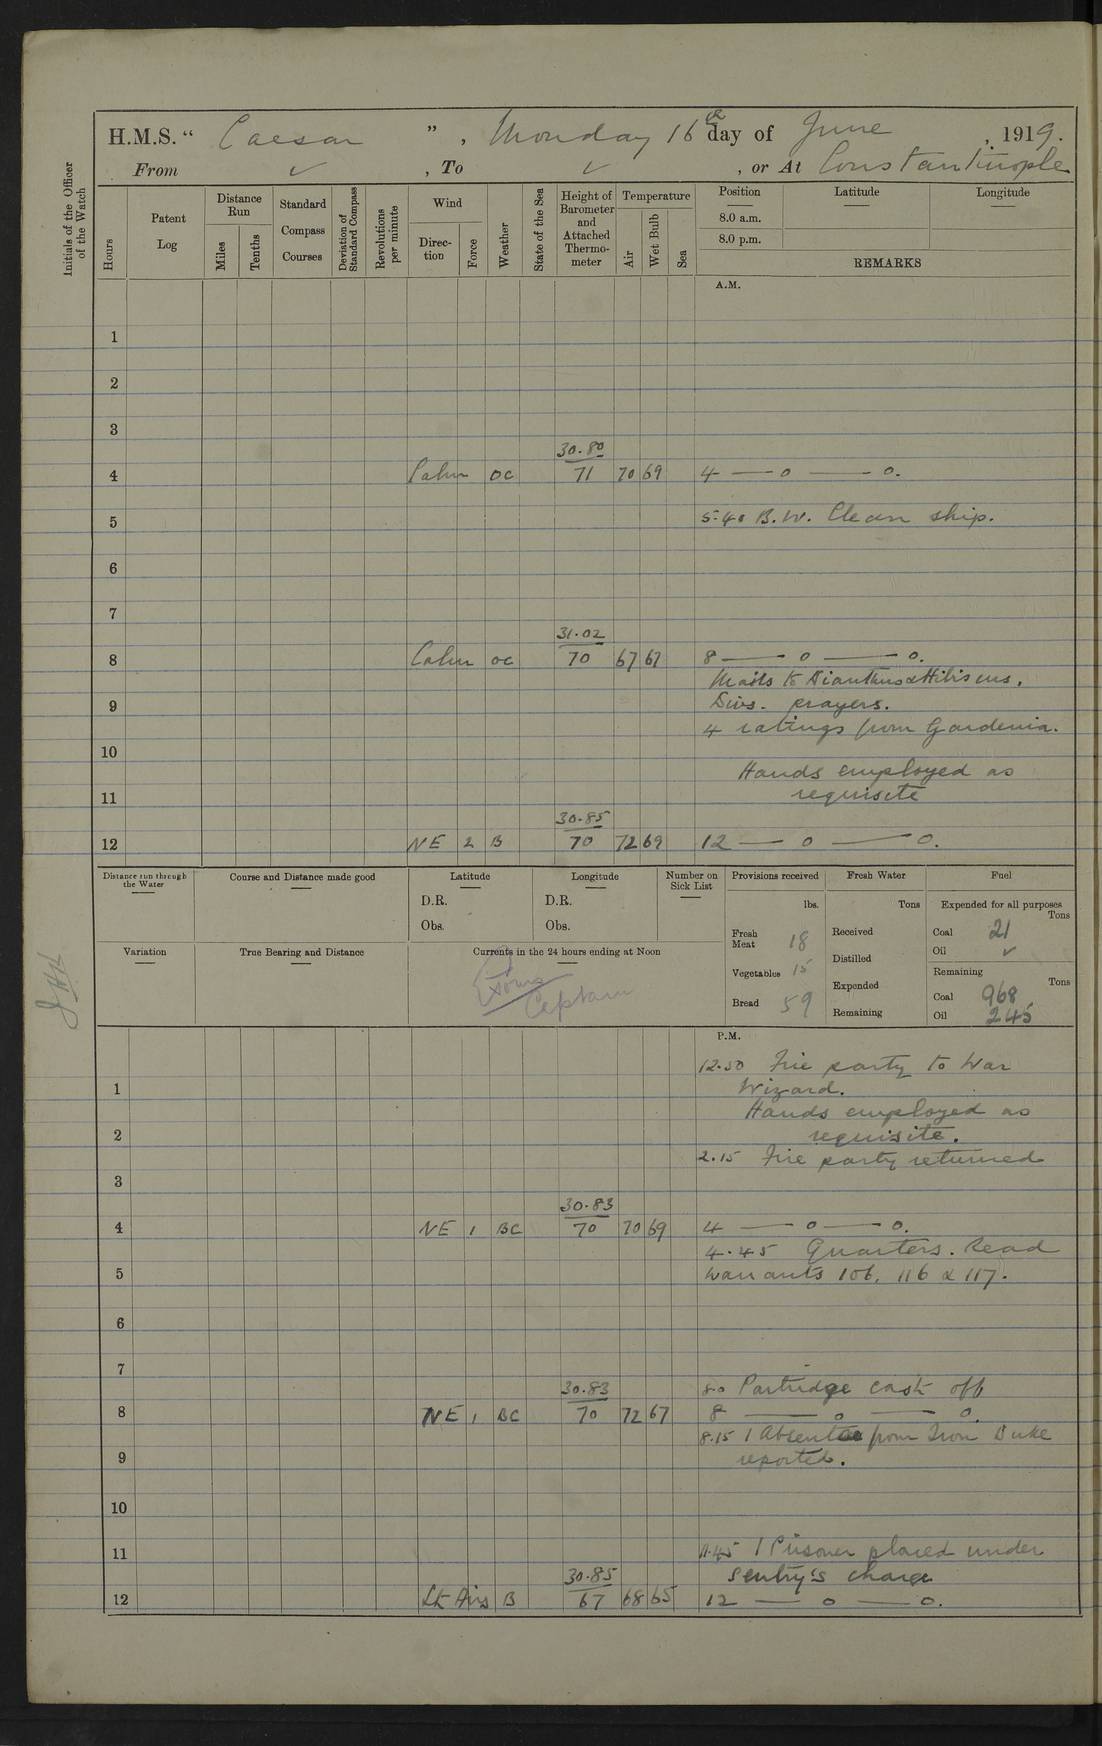 H.M.S. " Caesar " , Monday 16th day of June , 1919.
From ✓ , To ✓ , or At Constantinople
Initials of the Officer of the Watch
Hours
Patent Log
Distance Run
Miles
Tenths
Standard Compass Courses
Deviation of Standard Compass
Revolutions per minute
Wind
Direc- tion
Force
Weather
State of the Sea
Height of Barometer and Attached Thermo- meter
Temperature
Air
Wet Bulb
Sea
Position
Latitude
Longitude
8.0 a.m.
8.0 p.m.
REMARKS
A.M.
1
2
3
30.80
4 Calm oc 71 70 69 4 — o — o.
5 5.40 B.W. Clean ship.
6
7
31.02
8 Calm oc 70 67 67 8 — o — o.
Mails to Dianthus & Hibiscus.
9 Divs. prayers.
4 ratings from Gardenia.
10
Hands employed as
11 requisite
30.85
12 NE 2 B 70 72 69 12 — o — o.
Distance run through the Water
Course and Distance made good
Latitude
Longitude
Number on Sick List
Provisions received
Fresh Water
Fuel
D.R.
D.R.
lbs.
Tons
Expended for all purposes
Tons
Obs.
Obs.
Fresh Meat 18
Received
Coal 21
Oil ✓
Variation
True Bearing and Distance
Currents in the 24 hours ending at Noon
Vegetables 15
Distilled
Remaining
Tons
Expended
Coal 968
Captain
Bread 59
Remaining
Oil 245
P.M.
12.50 Fire party to War
1 Wizard.
Hands employed as
2 requisite.
2.15 Fire party returned
3
30.83
4 NE 1 BC 70 70 69 4 — o — o.
4.45 Quarters. Read
5 Warrants 106, 116 & 117.
6
7
30.83 8.0 Partridge cast off
8 NE 1 BC 70 72 67 8 — o — o.
8.15 1 Absentee from Iron Duke
9 reported.
10
11 11.45 1 Prisoner placed under
30.85 sentry's charge
12 Lt Airs B 67 68 65 12 — o — o.